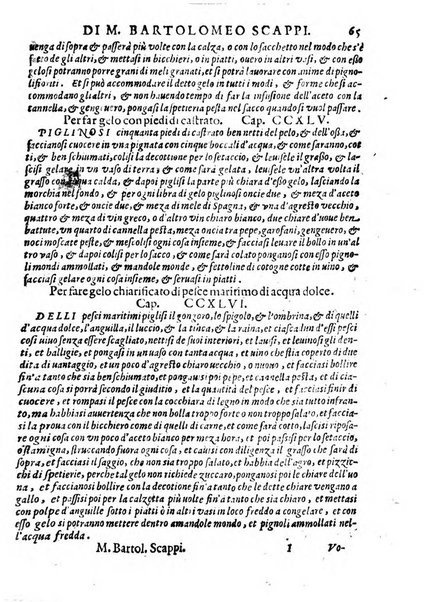 DI M. BARTOLOMEO SCAPPI. 65
uenga di sopra, & passerà più volte con la calza, o con lo sacchetto nel modo che s'è
fatto gli altri, & mettasi in bicchieri, o in piatti, ouero in altri vasi, & per entro esso
gelo si potranno porre grani di meli granati, et si potrà lauorare con anime di pigno-
li fioriti. Et si può accommodare il detto gelo in tutti i modi, & forme che si ac-
commodano gl'altri, & non hauendo tempo di far la infusione dell'aceto con la
cannella, & gengeuero, pongasi la spetieria pesta nel sacco quando si vuol passare.
Per far gelo con piedi di castrato. Cap. CCXLV.
PIGLINOSI cinquanta piedi di castrato ben netti del pelo, & dell'ossa, &
faccianosi cuocere in vna pignata con cinque boccali d'acqua, & come saranno, cot
ti, & ben schiumati, colisi la decottione per lo setaccio, & leuisele il grasso, & la-
scisi gelare in vn vaso di terra, & come sarà gelata, leuisele vn'altra volta il
grasso con acqua calda, & dapoi piglisi la parte più chiara d'esso gelo, lasciando la
morchia nel fondo, & per ogni libra di gelo piglinosi oncie due, & meza di aceto
bianco forte, oncie due, & meza di mele di Spagna, & vna d'agresto vecchio,
quattro & meza di vin greco, o d'altro vin chiaro bianco, due chiare d'uoue ben
battute, vn quarto di cannella pesta, mezo quarto tra pepe, garofani, gengeuero, &
noci moscate peste, & mescolisi ogni cosa insieme, & facciasi leuare il bollo in vn'al
tro vaso, & dapoi colisi per la calzetta, & come sarà colato ponganosi con esso pi-
gnoli mondi ammollati, & mandole monde, & fettoline di cotogne cotte in vino, &
lascisi gelare ogni cosa insieme, & seruasi in piatti.
Per fare gelo chiarificato di pesce maritimo di acqua dolce.
Cap. CCXLVI.
DELLI pesci maritimi piglisi il gongoro, lo spigolo, & l'ombrina, & di quelli
d'acqua dolce, l'anguilla, il luccio, & la tinca, & la raina, et ciascun d'essi pesci
senza esser scagliato, nettisi de suoi interiori, et lauisi, et leuinosi gli den-
ti, et battigie, et taglisi in pezzi, et pongasi in acqua, et vino che stia coperto di due
dita di vantaggio, et vn poco d'aceto chiaro, et agresto chiaro, et faccianosi bollire
fin'a tanto che sia ben schiumato, et pongauisi pepe ammaccato, et cannella, et di cia-
scuna cosa si porrà secondo il giuditio, et la quantità del pesce, et facciasi finir di
cuocere, et rompasi il pesce con la cocchiara di legno in modo che sia tutto infran-
to, ma habbiasi auuertenza che non bolla troppo forte o non troppo salato, et faccia-
si la proua con il bicchiero come di quelli di carne, et come sarà cotto, lascisi riposa-
re ogni cosa con vn poco d'aceto bianco per meza hora, et poi colisi per lo setaccio,
o stamigna, struccandolo bene, et cauisi con diligenza il grasso che sarà di
sopra, et facciasi il saggio, che non sia troppo salato, et habbia dell'agro, et pizzic-
chi di spetierie, perche tal gelo non richiede zuccaro, pongasi con esso chiare d'uo-
ue, et faccianosi bollire con la decottione fin'a tanto che esse chiare vengano a
gallo, et passisi poi per la calzetta più volte fin'a tanto che sia chiaro, et mettasi
con polpe d'anguille sotto i piatti ò in altri vasi in loco freddo a congelare, et con
esso gelo si potranno mettere dentro amandole monde, et pignoli ammollati nel-
l'acqua fredda.
M. Bartol. Scappi. I Vo-